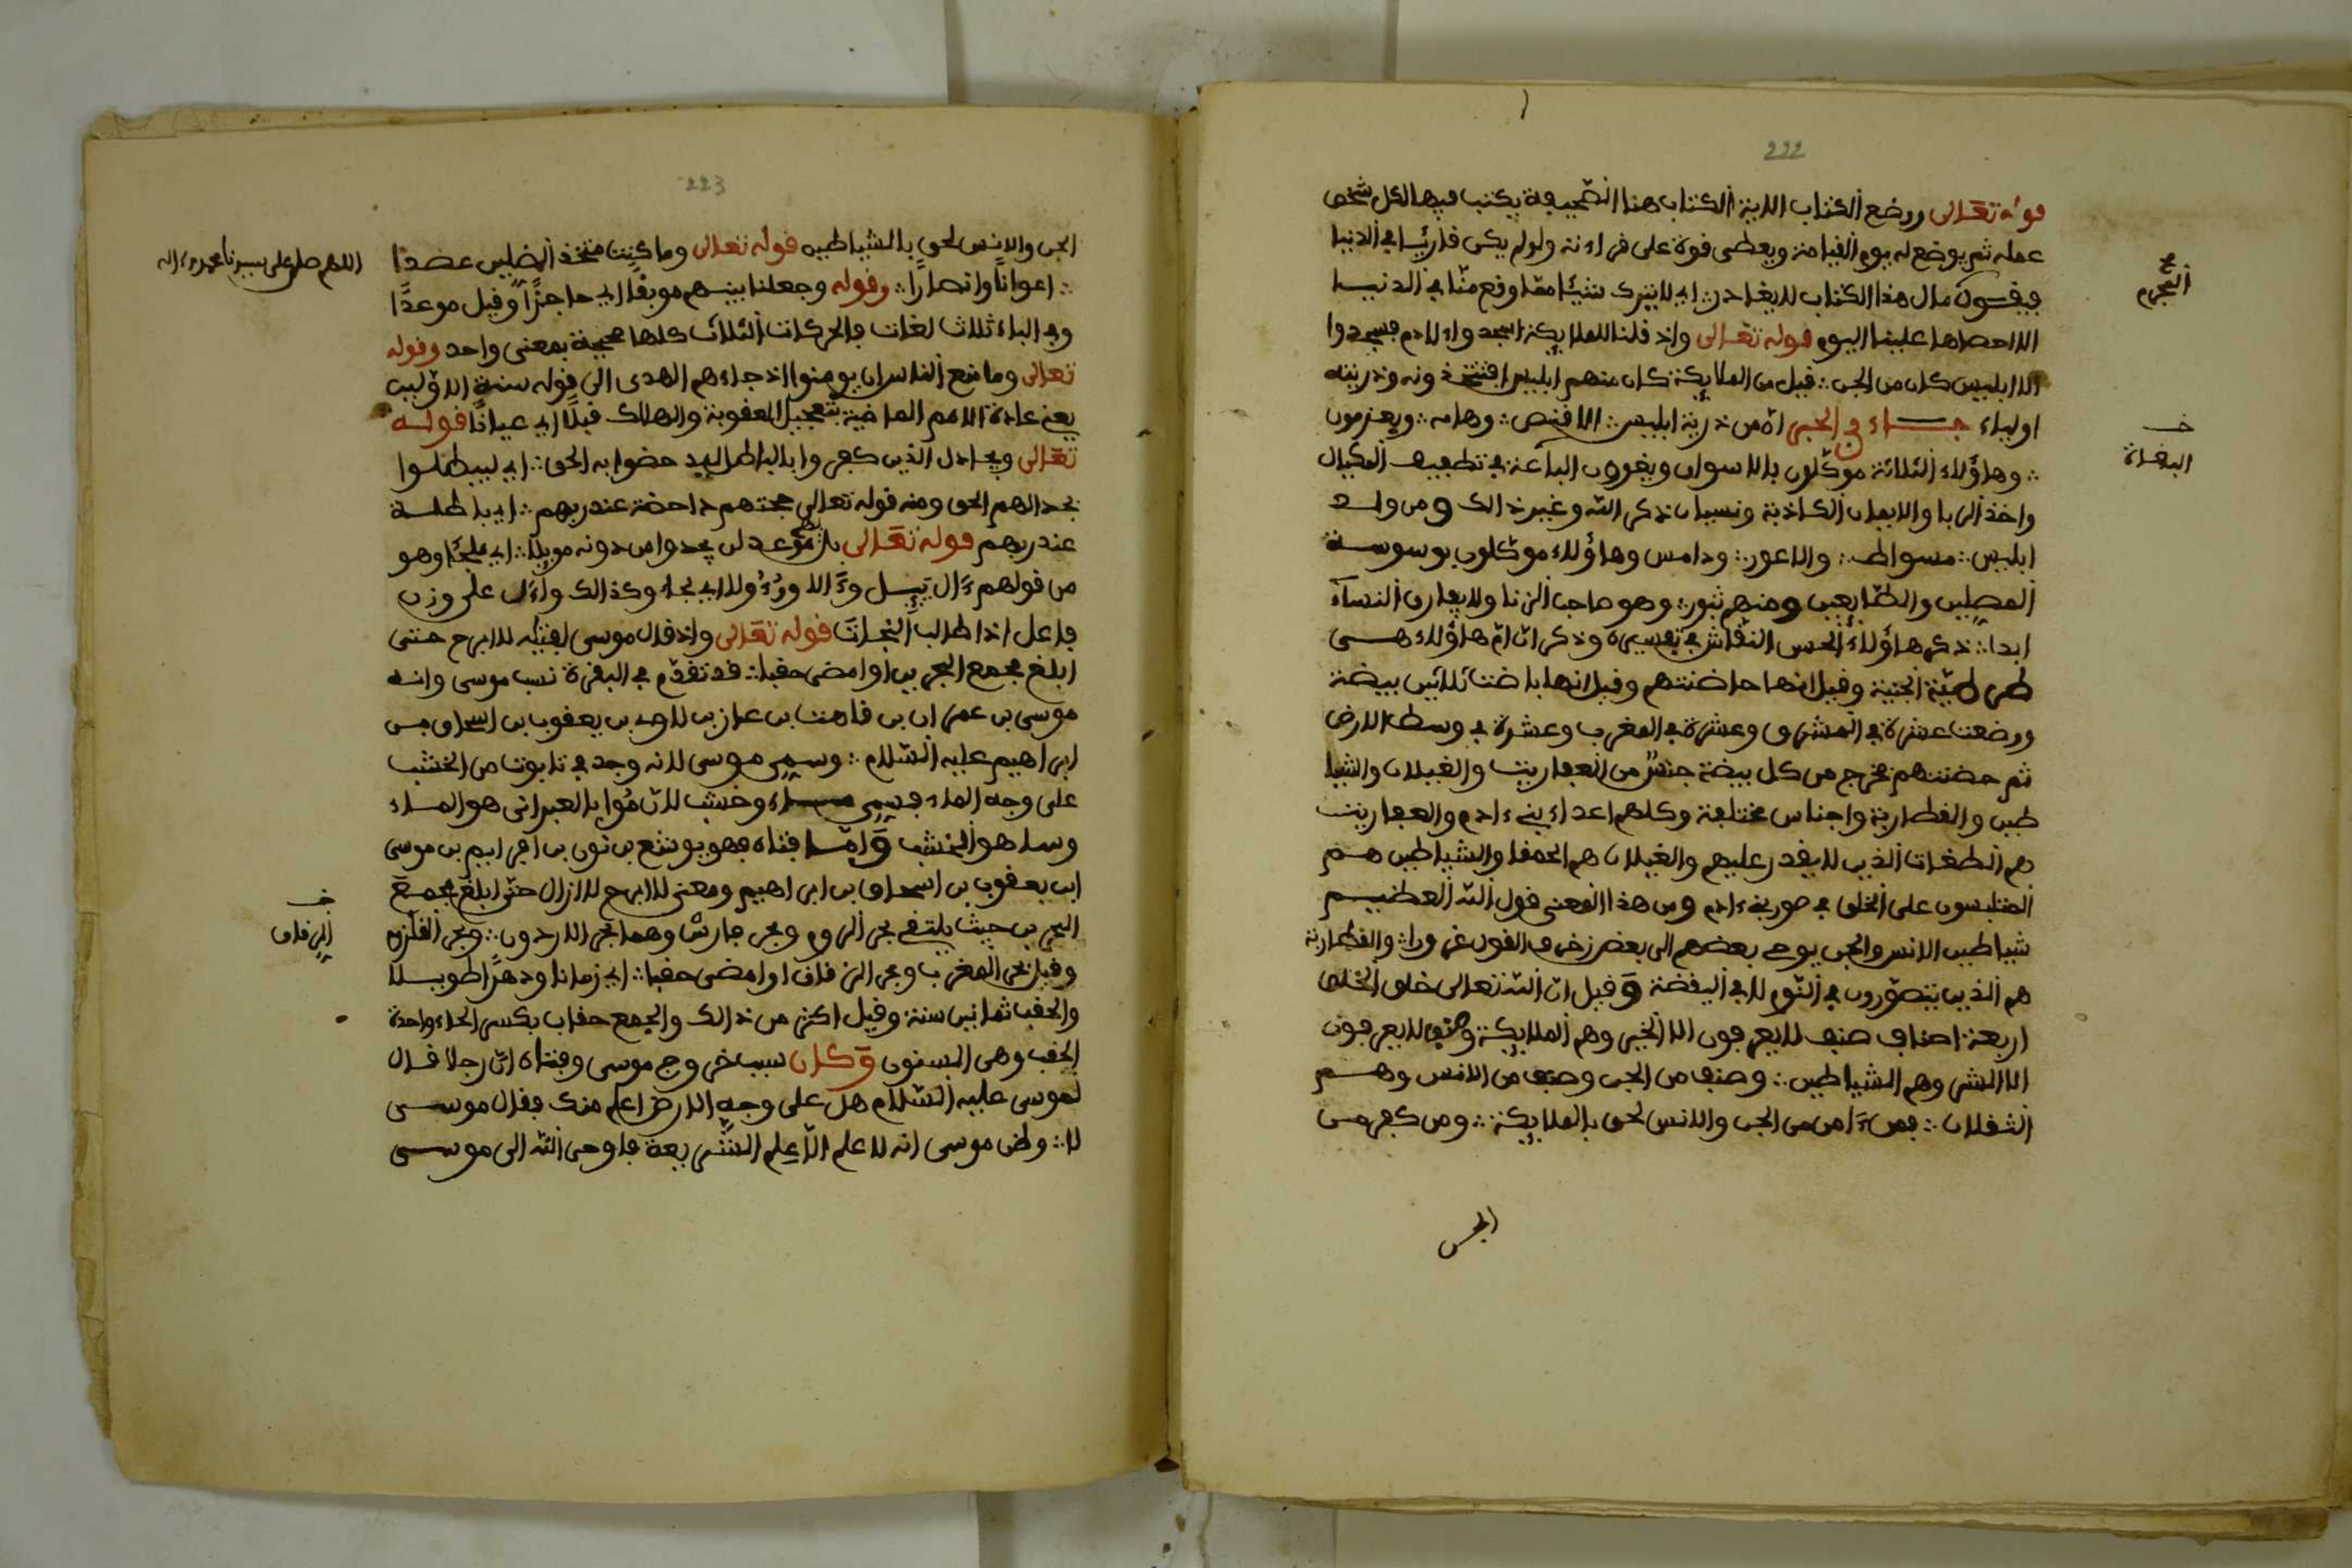 222
قوله تعالى ووضع الكتاب الاية الكتاب هنا الصحيفة يكتب فيها لكل شخص
عمله ثم يوضع له يوم القيامة ويعطى قوة على قراءته ولو لم يكن قارئا في الدنيا
فيقول مال هذا الكتاب لا يغادر اي لا يترك شيئا مما وقع منا في الدنيا
المجرم
الا احصاها علينا اليوم قوله تعالى واذ قلنا للملايكة اسجدوا لادم فسجدوا
الا ابليس كان من الجن قيل من الملايكة كان منهم ابليس افتتخذونه وذريته
اولياء جاء في الخبر ان من ذرية ابليس الافنص وهامه ويعزمون
وهاؤلاء الثلاثة موكلون بالاسواق ويغرون الباعة في تطفيف المكيال
واخذ الربا والايمان الكاذبة ونسيان ذكر الله وغير ذالك ومن ولد
ابليس مسواط والاعور ودامس وهاؤلاء موكلون بوسوسة
المصلين والطايعين ومنهم ثبور وهو صاحب الزنا ولا يفارق النساء
ابدا ذكر هاؤلاء الخمس النقاش في تفسيره وذكر ان ام هاؤلاء هي
طرطبة الجنية وقيل انها حاضنتهم وقيل انها باضت ثلاثين بيضة
ووضعت عشرة في المشرق وعشرة في المغرب وعشرة في وسط الارض
ثم حضنتهم فخرج من كل بيضة جنس من العفاريت والغيلان والشيا
طين والقطاربة واجناس مختلفة وكلهم اعداء بني ءادم والعفاريت
هم الطغات الذين لا يقدر عليهم والغيلان هم الحمقا والشياطين هم
المتلبسون على الخلق في صورة بني ءادم ومن هذا المعنى قول الله العظيم
شياطين الانس والجن يوحي بعضهم الى بعض زخرف القول غرورا والقطاربة
هم الذين يتصورون في النوم لا في اليقضة وقيل ان الله تعالى خلق الخلق
اربعة اصناف صنف لا يعرفون الا الخير وهم الملايكة وصنف لا يعرفون
الا الشر وهم الشياطين وصنف من الجن وصنف من الانس وهم
الثقلان فمن ءامن من الجن والانس لحق بالملايكة ومن كفر من
الجن
223
الجن والانس لحق بالشياطين قوله تعالى وما كنت متخذ المضلين عضدا
اللهم صل على سيدنا محمد وءاله
اعوانا وانصارا وقوله وجعلنا بينهم موبقا اي حاجزا وقيل موعدا
وفي الباء ثلاث لغات بالحركات الثلاث كلها صحيحة بمعنى واحد وقوله
تعالى وما منع الناس ان يومنوا اذ جاءهم الهدى الى قوله سنة الاولين
يعني عادة الامم الماضية بتعجيل العقوبة والهلاك قبلا اي عيانا قوله
تعالى ويجادل الذين كفروا بالباطل ليدحضوا به الحق اي ليبطلوا
بجدالهم الحق ومنه قوله تعالى حجتهم داحضة عند ربهم اي باطلة
عند ربهم قوله تعالى بل لهم موعد لن يجدوا من دونه مويلا اي ملجئا وهو
من قولهم وءال يئل وءالا وءولا اي لجا وكذالك واءل على وزن
فاعل اذا طلب النجاة قوله تعالى واذ قال موسى لفتيه لا ابرح حتى
ابلغ مجمع البحرين او امضي حقبا قد تقدم في البقرة نسب موسى وانه
موسى بن عمران بن قاهت بن عازب بن لاوى بن يعقوب بن اسحاق بن
ابراهيم عليه السلام وسمي موسى لانه وجد في تابوت من الخشب
على وجه الماء فسمي ماء وخشب لان مو بالعبراني هو الماء
وسا هو الخشب واما فتاه فهو يوشع بن نون بن افرايم بن موسى
ابن يعقوب بن اسحاق بن ابراهيم ومعنى لا ابرح لا ازال حتى ابلغ مجمع
البحرين حيث يلتقي بحر الروم وبحر فارس وهما بحر الاردون وبحر القلزم
الزقاق
وقيل بحر المغرب وبحر الزقاق او امضي حقبا اي زمانا ودهرا طويلا
والحقب ثمانين سنة وقيل اكثر من ذالك والجمع حقاب بكسر الحاء واحدة
الحقب وهي السنون وكان سبب خروج موسى وفتاه ان رجلا قال
لموسى عليه السلام هل على وجه الارض اعلم منك فقال موسى
لا وظن موسى انه لا علم الا علم الشريعة فاوحى الله الى موسى